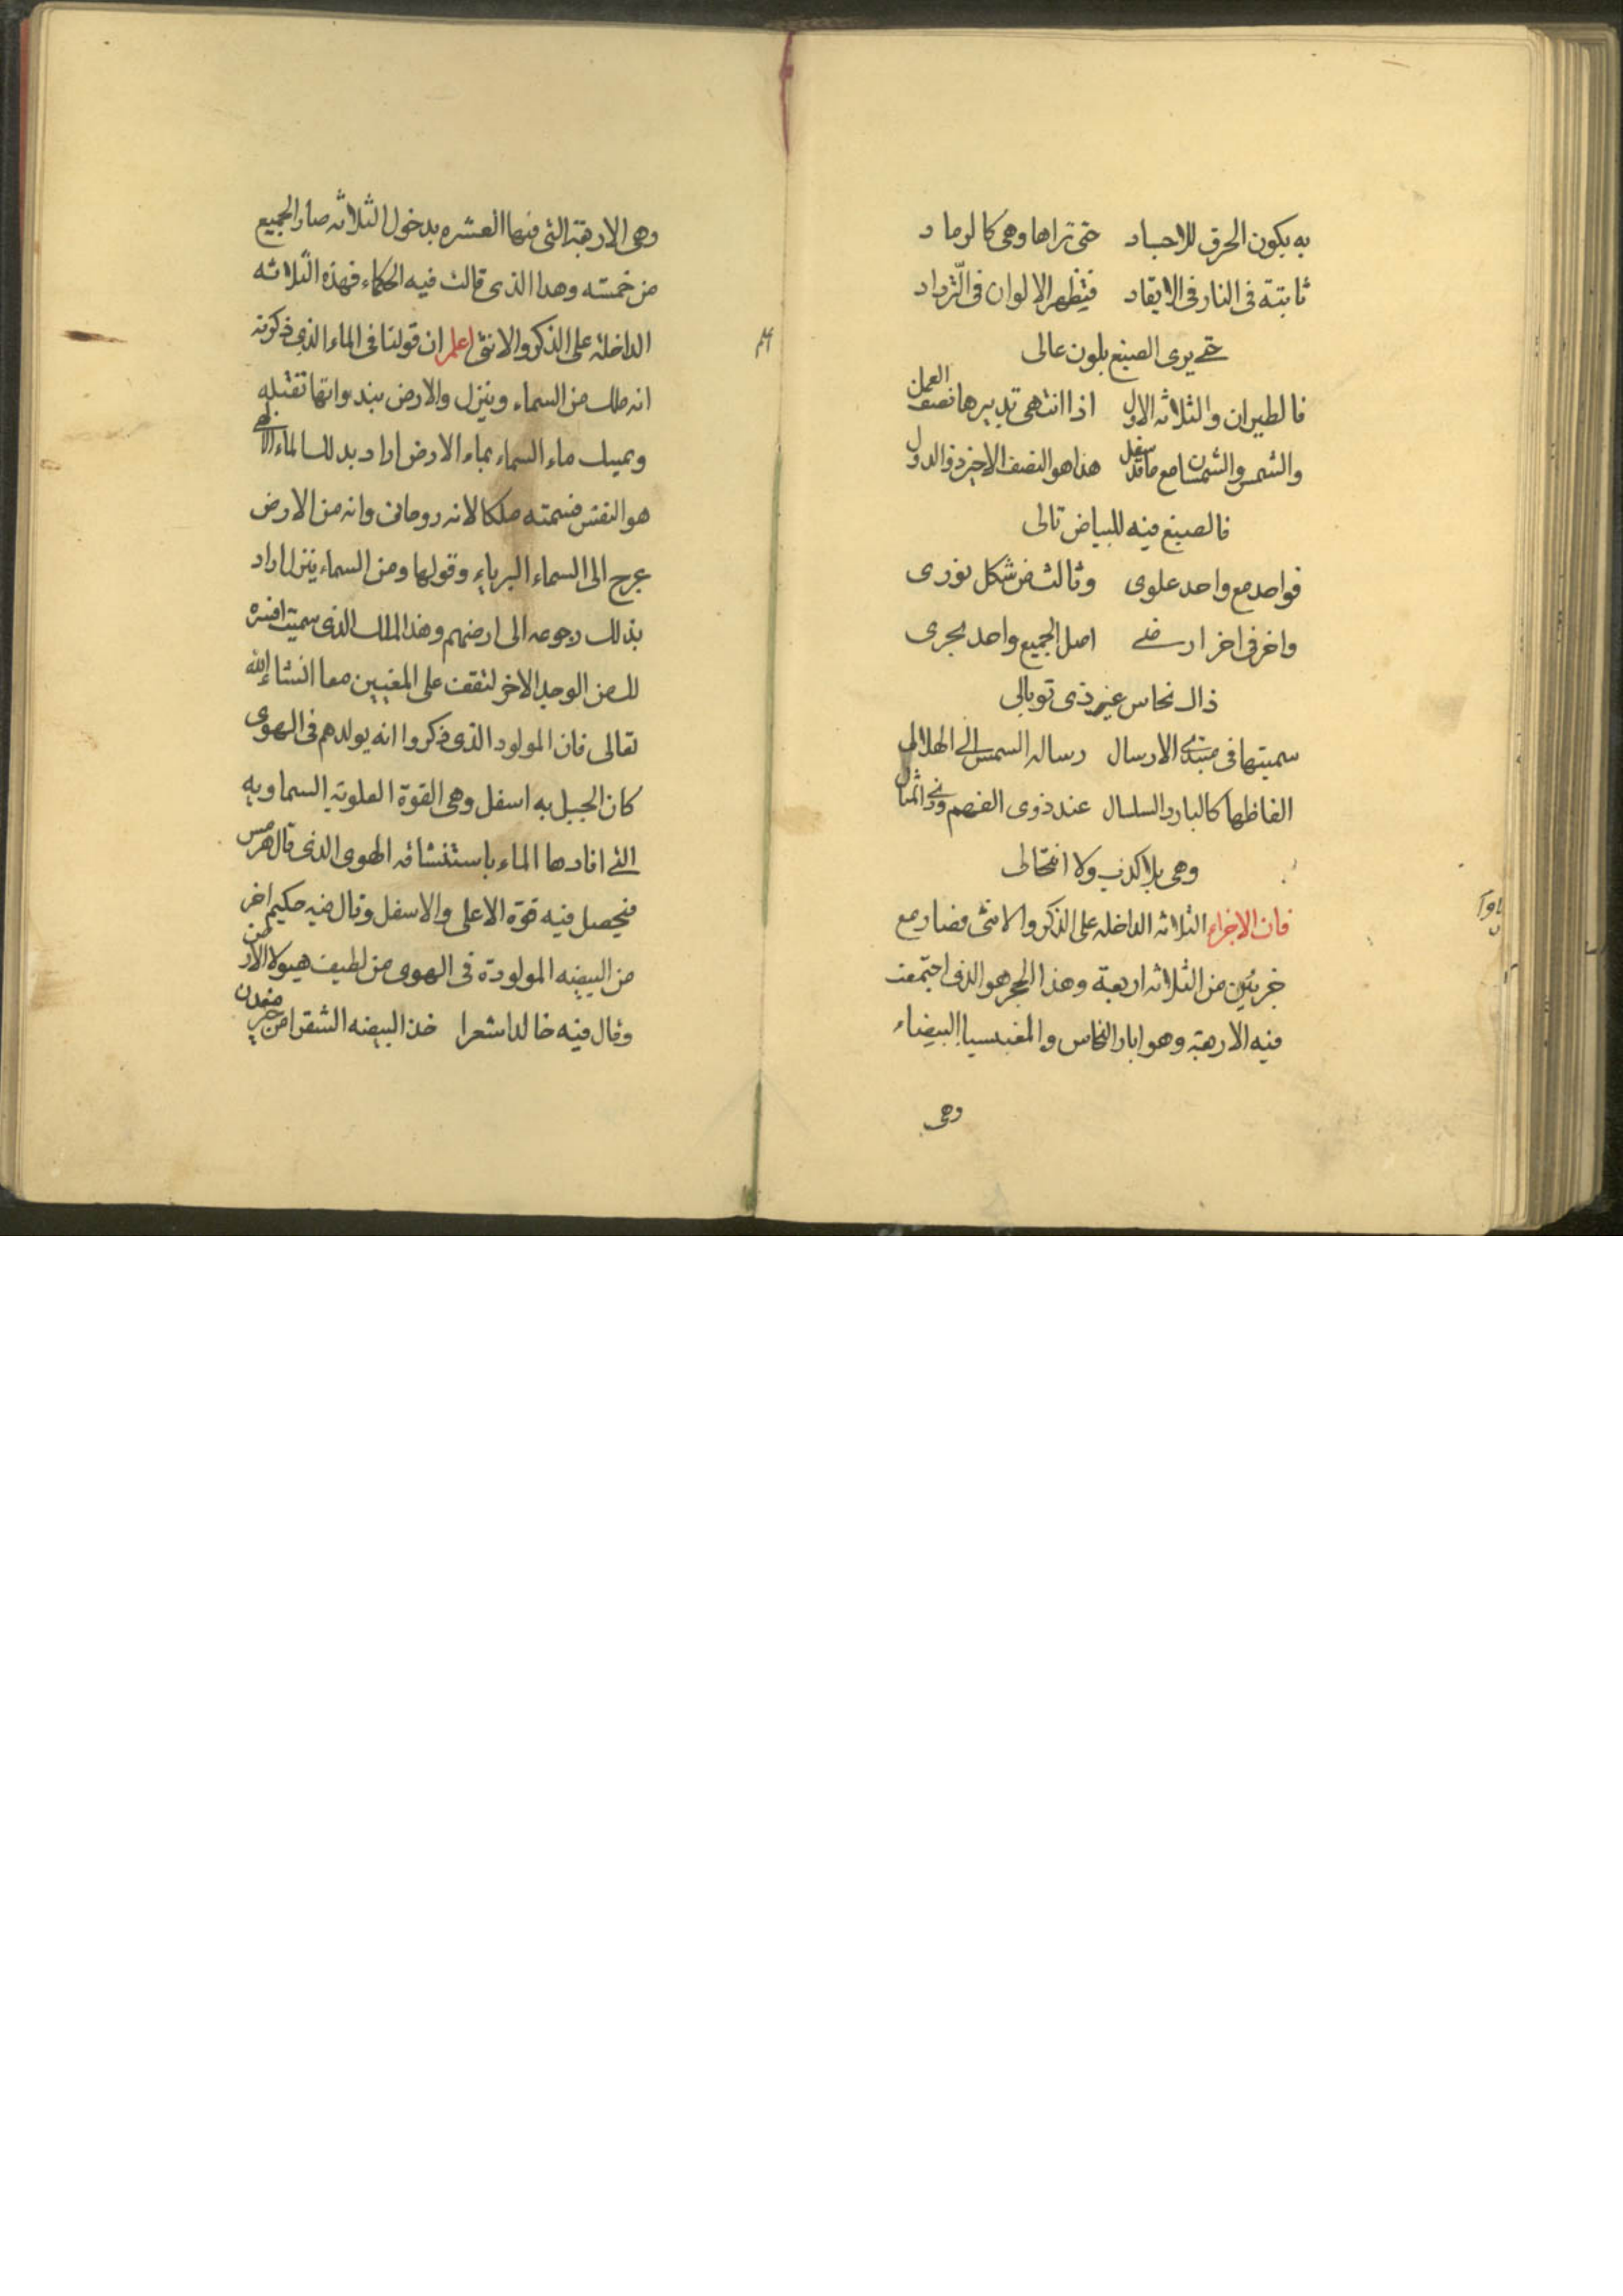 به يكون الحرق للاجساد حتى تراها وهى كالرماد
ثابتة فى النار فى الايقاد فيظهر الالوان فى الترداد
حتے يرى الصبغ بلون عالى
فالطيران والثلاثه الاول اذا انتهى تدبيرها نصف العمل
والشمس والشمس مع ماقد سفل هذا هو النصف الاخير ذو الدول
فالصبغ فيه للبياض تالى
فواحد مع واحد علوى وثالث من شكل نورى
واخر فى اخر ارضے اصل الجميع واحد بحرى
ذاك نحاس غير ذى توبالى
سميتها فى مبتدى الارسال رسالة الشمس الے الهلالى
الفاظها كالبارد السلسال عند ذوى الفهم وذى
وهى بلا كذب ولا
فان الاجزاء الثلاثه الداخله على الذكر والانثى فصار مع
جزئين من الثلاثه اربعة وهذا الحجر هو الذى اجتمعت
فيه الاربعة وهو ابار النحاس والمغنيسيا البيضاء
وهى
وهى الاربعة التى فيها العشره بدخول الثلاثه صار الجميع
من خمسته وهدا الذى قالت فيه الحكماء فهذه الثلاثه
الداخلة على الذكر والانثى اعلم ان قولنا فى الماء الذى ذكرته
انه ملك من السماء وينزل والارض بنداوتها تقبله
ويمسك ماء السماء بماء الارض اراد بدلك الماء الالهى
هو النفس فسمته ملكا لانه روحانى وانه من الارض
عرج الى السماء البرباء وقولها ومن السماء ينزل اراد
بذلك رجوعه الى ارضهم وهذا الملك الذى سميت افسره
لك من الوجه الاخر لتقف على المعنيين معا انشا الله
تعالى فان المولود الذى ذكروا انه يولدهم فى الهوى
كان الجبل به اسفل وهى القوة العلوية السماويه
التے افادها الماء باستنشاقه الهوى الدى قال هرمس
فيحصل فيه قوة الاعلى والاسفل وقال فيه حكيم اخر
من البيضه المولودة فى الهوى من لطيف هيولا الاركن
وقال فيه خالدا شعرا خذ البيضه الشقرا من خير معدن